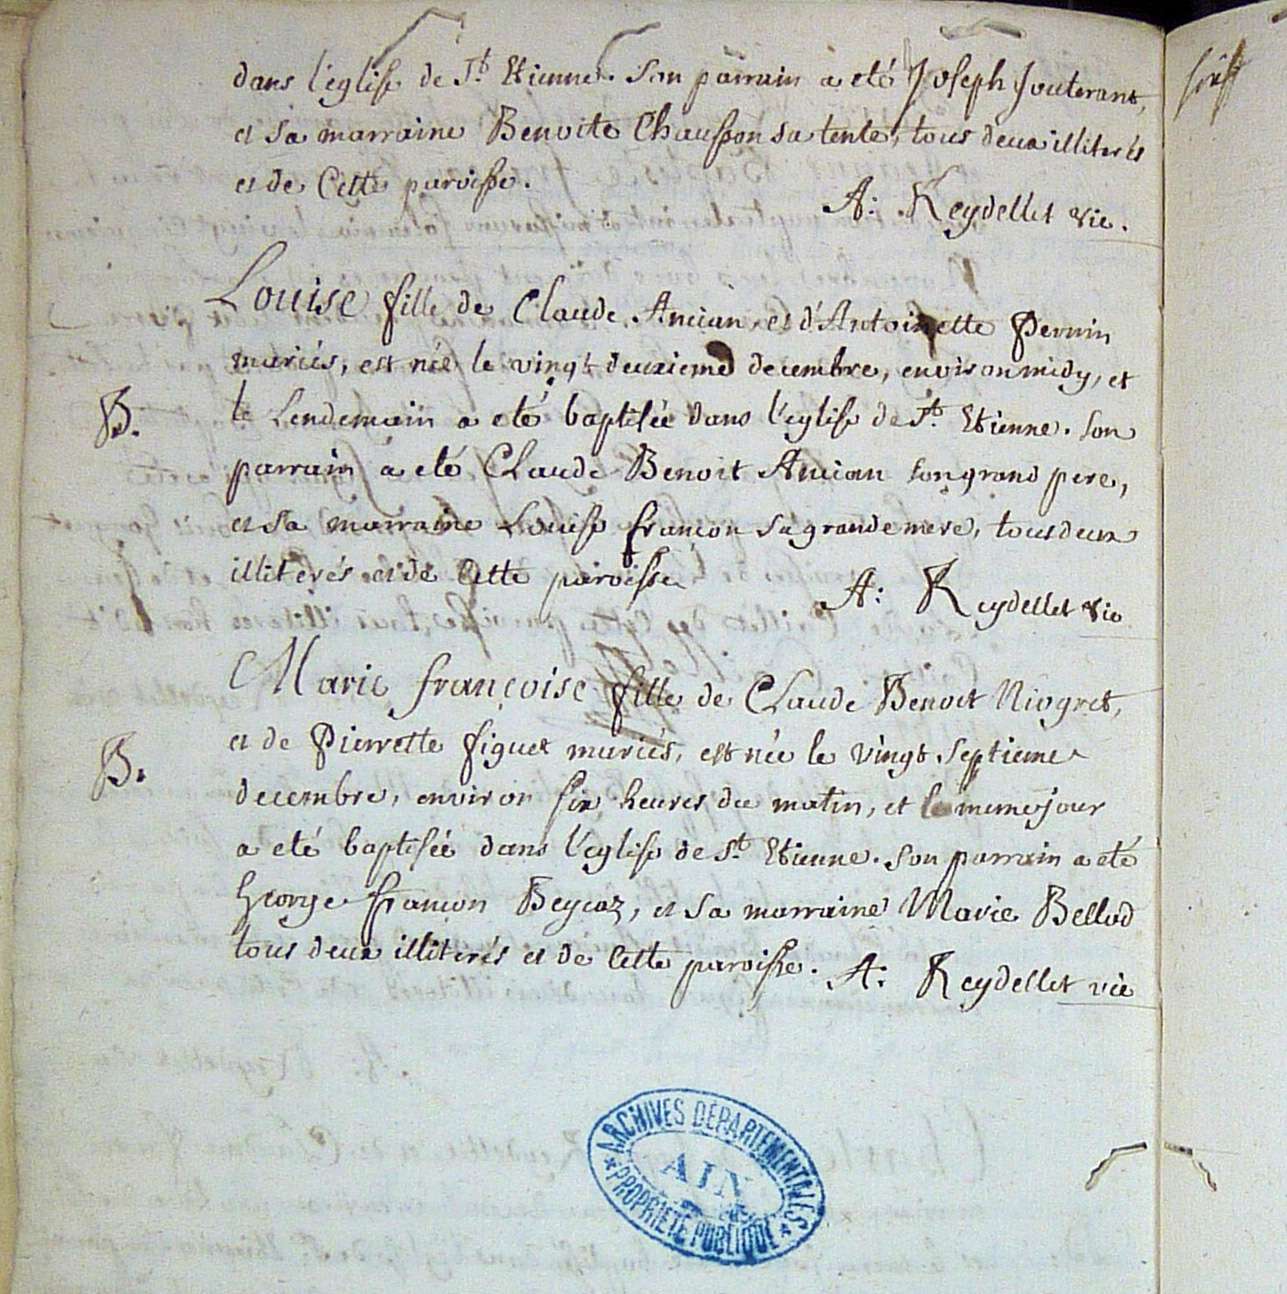 dans l'eglise de St. Etienne. Son parrain a eté Joseph Jouterant,
et sa marraine Benoite Chausson sa tente, tous deux illiterés
et de Cette paroisse.
A: Reydellet vic.
Louise fille de Claude Ancian, et d'Antoinette Pernin
mariés, est née le vingt deuxieme decembre, environ midy, et
B.
le Lendemain a eté baptisée dans l'eglise de St. Etienne. Son
parrain a eté Claude Benoit Ancian son grand pere,
et sa marraine Louise françon sa grande mere, tous deux
illiterés et de Cette paroisse
A: Reydellet vic
Marie françoise fille de Claude Benoit Niogret,
et de Pierrette figuet mariés, est née le vingt septieme
B.
decembre, environ six heures du matin, et le meme jour
a eté baptisée dans l'eglise de St. Etienne. Son parrain a eté
George françon Beycoz, et sa marraine Marie Bellod
tous deux illiterés et de Cette paroisse.
A: Reydellet vic
ARCHIVES DÉPARTEMENTALES
AIN
PROPRIÉTÉ PUBLIQUE